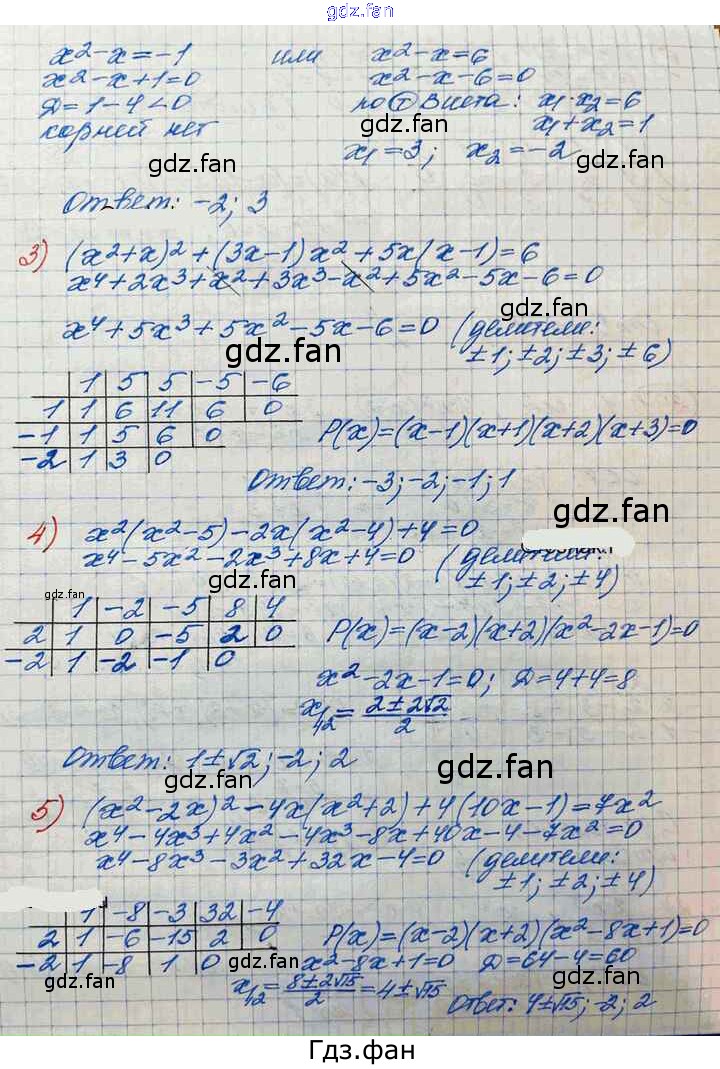 gdz.fan
x² - x = -1 или x² - x = 6
x² - x + 1 = 0 x² - x - 6 = 0
Д = 1 - 4 < 0 по Т Виета: x₁·x₂ = 6
корней нет gdz.fan x₁ + x₂ = 1
gdz.fan x₁ = 3; x₂ = -2 gdz.fan
Ответ: -2; 3
3) (x² + x)² + (3x - 1)x² + 5x(x - 1) = 6
x⁴ + 2x³ + x² + 3x³ - x² + 5x² - 5x - 6 = 0
gdz.fan gdz.fan
x⁴ + 5x³ + 5x² - 5x - 6 = 0 (делители:
gdz.fan ±1; ±2; ±3; ±6)
1 5 5 -5 -6
1 1 6 11 6 0
-1 1 5 6 0 P(x) = (x-1)(x+1)(x+2)(x+3) = 0
-2 1 3 0
Ответ: -3; -2; -1; 1
gdz.fan gdz.fan
4) x²(x² - 5) - 2x(x² - 4) + 4 = 0
x⁴ - 5x² - 2x³ + 8x + 4 = 0 (делители:
gdz.fan gdz.fan gdz.fan ±1; ±2; ±4)
1 -2 -5 8 4
2 1 0 -5 2 0 P(x) = (x-2)(x+2)(x²-2x-1) = 0
-2 1 -2 -1 0
gdz.fan x² - 2x - 1 = 0; Д = 4 + 4 = 8
x₁,₂ = (2 ± 2√2)/2 gdz.fan
Ответ: 1±√2; -2; 2
gdz.fan gdz.fan
5) (x² - 2x)² - 4x(x² + 2) + 4(10x - 1) = 7x²
x⁴ - 4x³ + 4x² - 4x³ - 8x + 40x - 4 - 7x² = 0
x⁴ - 8x³ - 3x² + 32x - 4 = 0 (делители:
gdz.fan ±1; ±2; ±4)
1 -8 -3 32 -4
2 1 -6 -15 2 0 P(x) = (x-2)(x+2)(x²-8x+1) = 0
-2 1 -8 1 0 gdz.fan x² - 8x + 1 = 0 Д = 64 - 4 = 60 gdz.fan
x₁,₂ = (8 ± 2√15)/2 = 4 ± √15 Ответ: 4±√15; -2; 2
gdz.fan gdz.fan
Гдз.фан